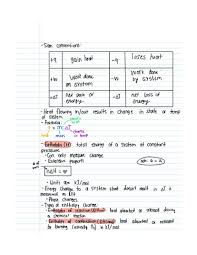 - Sign conventions:
+q gain heat -q loses heat
+w work done on system -w work done by system
+ΔE net gain of energy -ΔE net loss of energy
- Heat flowing in/out results in change in state or temp of system
- Formula:
q = mcΔT
mass
- Enthalpy (H): total energy of a system at constant pressure
- Can only measure change
- Extensive property
ΔH = q
- Units are kJ/mol
- Energy change to a system that doesn't result in ΔT is measured as
- Phase changes
- Types of enthalpy change:
- Enthalpy of reaction: heat absorbed or released during a chemical reaction
- Enthalpy of combustion: heat absorbed or released by burning (usually O₂) in kJ/mol